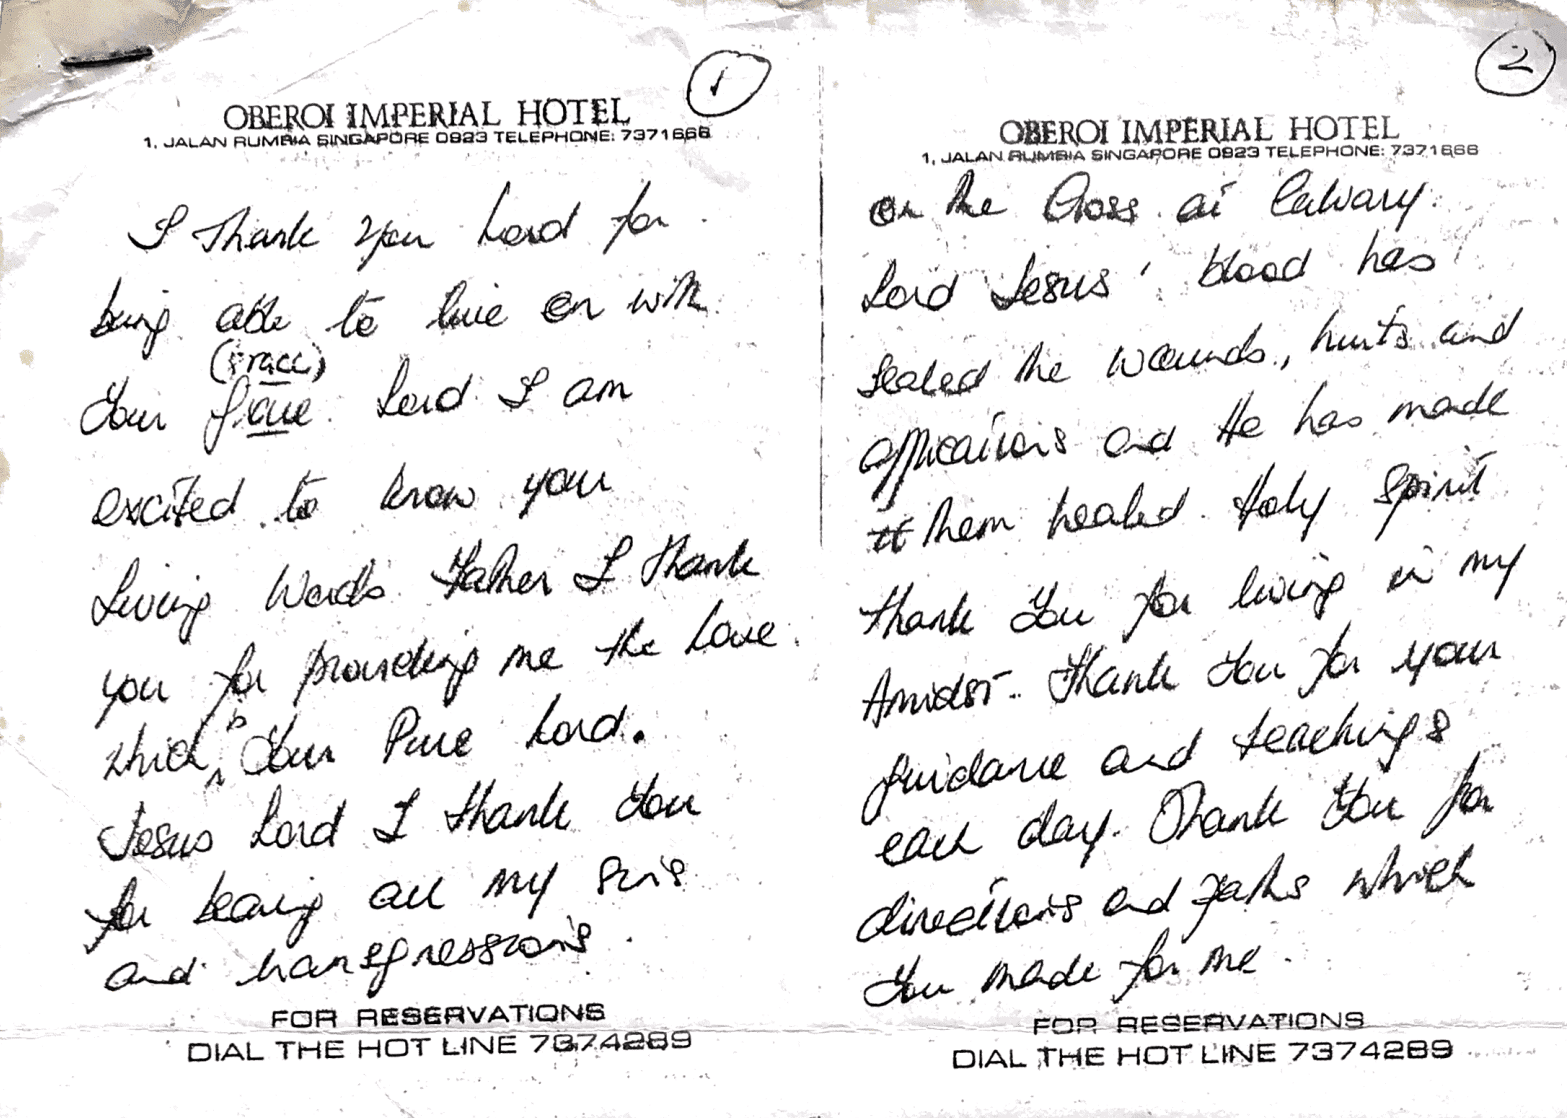 1
OBEROI IMPERIAL HOTEL
1, JALAN RUMBIA SINGAPORE 0923 TELEPHONE: 7371666
I Thank You Lord for
being able to live on with
(Grace)
Your Grace. Lord I am
excited to know your
Living Words. Father I thank
you for providing me the Love
which is Your Pure Lord.
Jesus Lord I thank You
for bearing all my sins
and transgressions.
FOR RESERVATIONS
DIAL THE HOT LINE 7374289
2
OBEROI IMPERIAL HOTEL
1, JALAN RUMBIA SINGAPORE 0923 TELEPHONE: 7371666
on the Cross at Calvary.
Lord Jesus' blood has
sealed the wounds, hurts and
afflications and He has made
them healed. Holy Spirit
thank You for living in my
Amidst. Thank You for your
guidance and teachings
each day. Thank You for
directions and paths which
You made for me.
FOR RESERVATIONS
DIAL THE HOT LINE 7374289